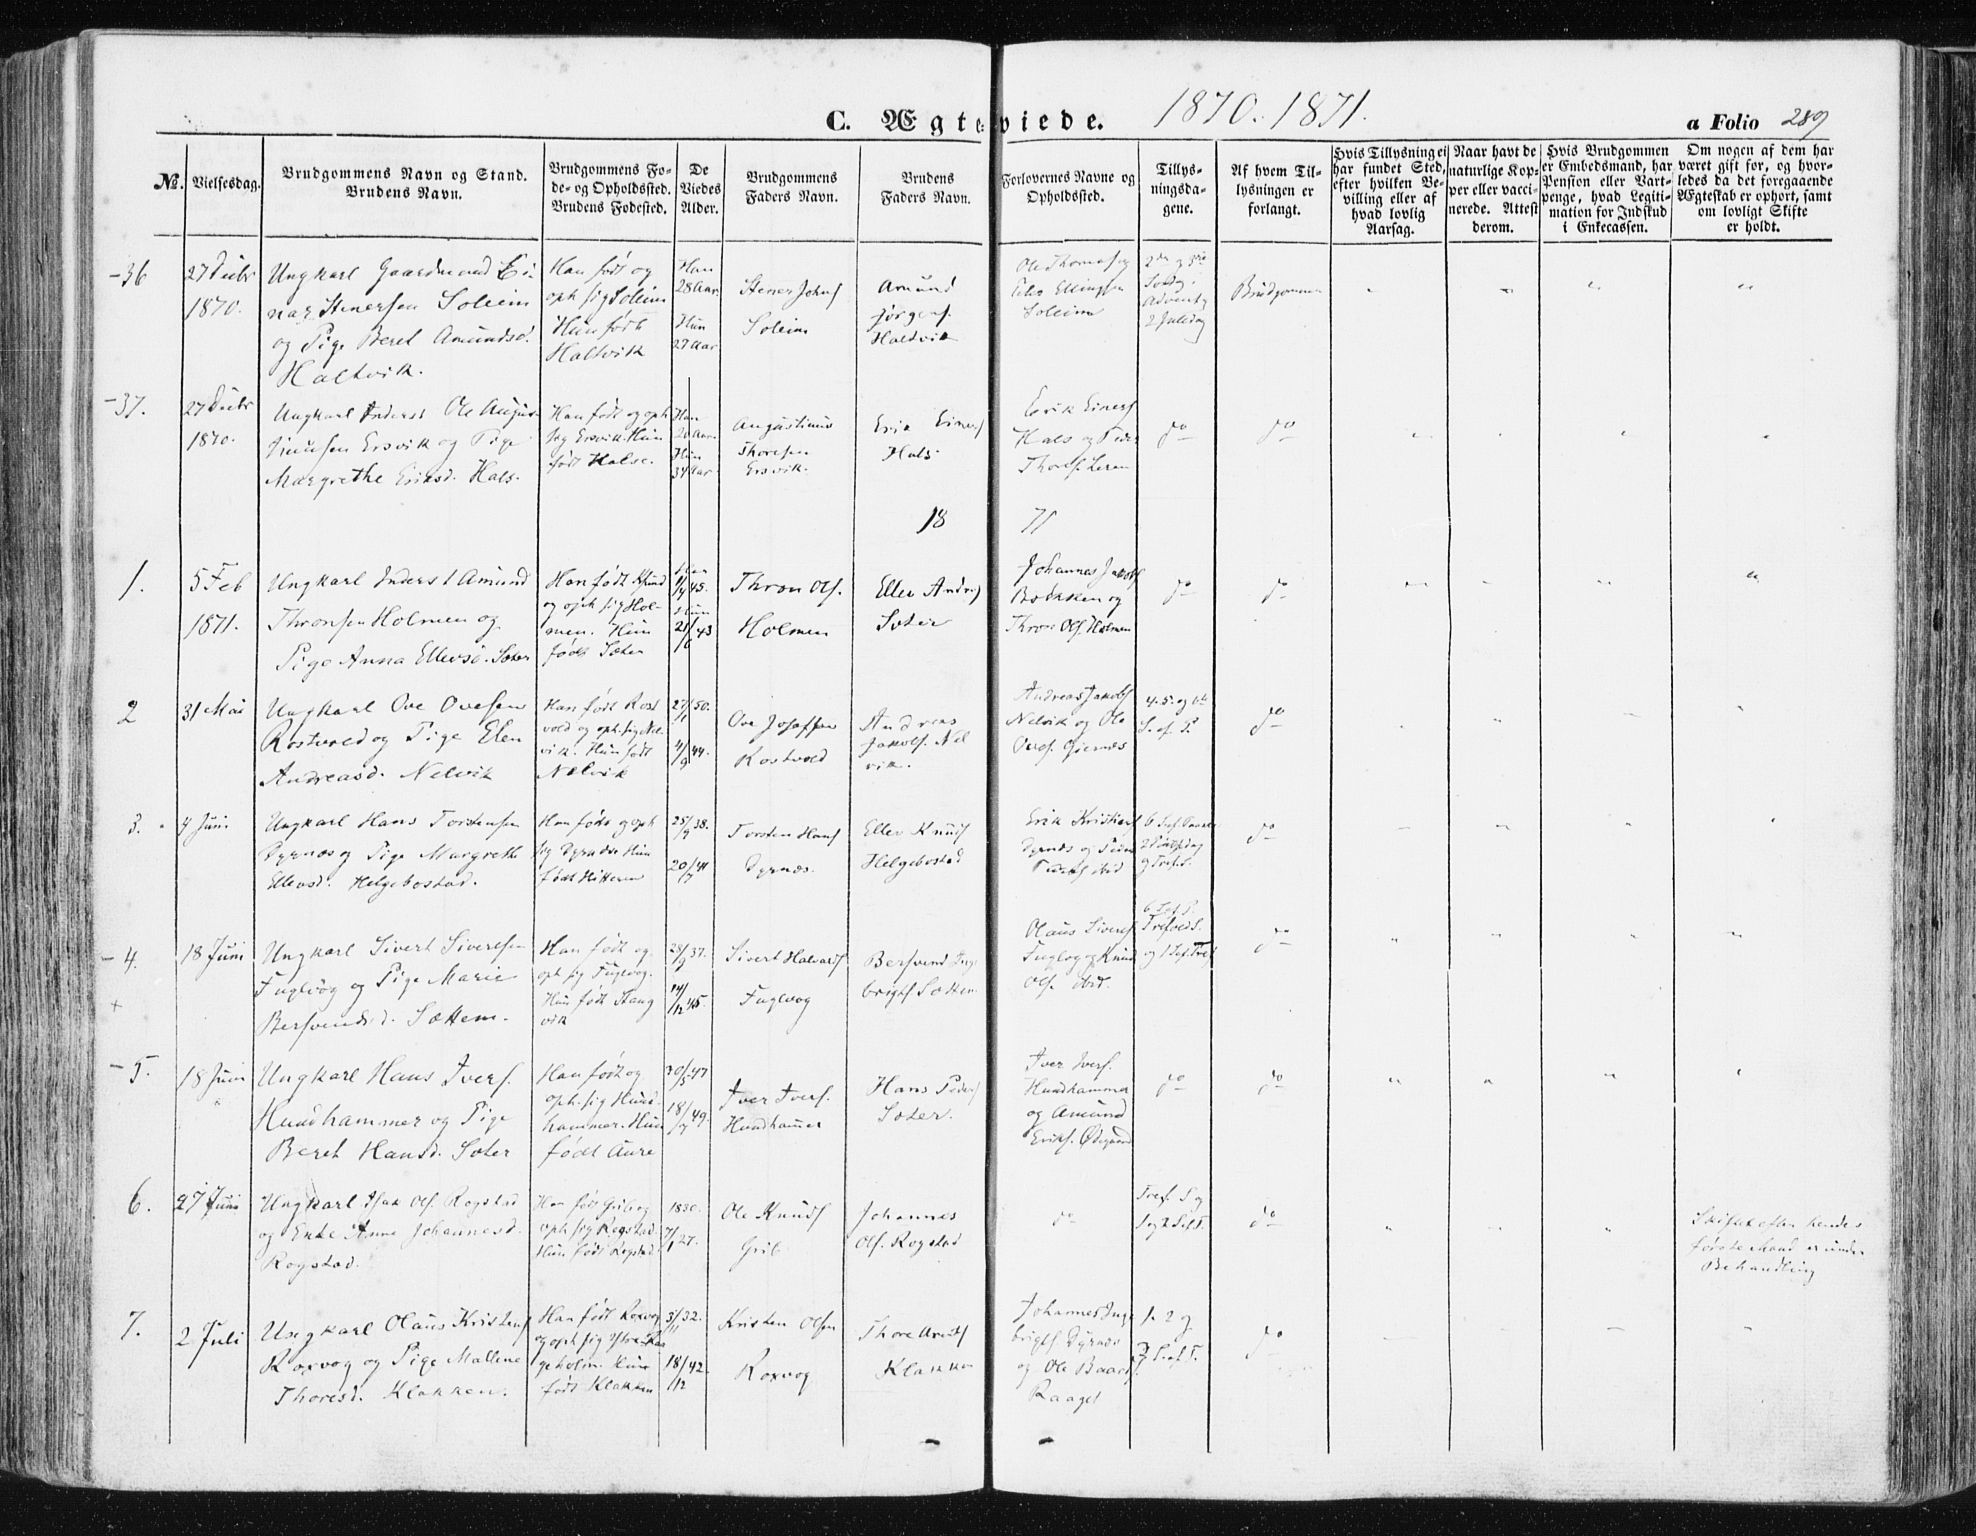 C. Ægteviede. 1870. 1871. a Folio 289
No. Vielsesdag. Brudgommens Navn og Stand. Brudens Navn.
Brudgommens Fode- og Opholdssted. Brudens Fødested.
De Viedes Alder.
Brudgommens Faders Navn.
Brudens Faders Navn.
Forlovernes Navne og Opholdssted.
Tillysningsdagene.
Af hvem Tillysningen er forlangt.
Hvis Tillysning ei har fundet Sted, efter hvilken Bevilling eller af hvad lovlig Aarsag.
Naar havt de naturlige Kopper eller vaccinerede. Attest derom.
Hvis Brudgommen er Embedsmand, har Pension eller Vartpenge, hvad Legitimation for Indskud i Enkecassen.
Om nogen af dem har været gift før, og hvorledes da det foregaaende Ægteskab er ophørt, samt om lovligt Skifte er holdt.
-36
27 Decbr
1870.
Ungkarl Gaardmand Ei-
nar Stenersen Soleim
og Pige Beret Amundsd.
Haltvik.
Han født og
oph. sig Soleim
Hun født
Haltvik
Han
28 Aar.
Hun
27 Aar.
Stener Johns
Soleim
Amund
Jørgens.
Haltvik
Ole Thomas og
Ellingsen
Soleim
2den og 3die
Søndg i
Advent og
2 Juledag
Brudgommen
-37.
27 Decbr
1870.
Ungkarl Inderst Ole Augus-
tinusen Ersvik og Pige
Margrethe Eriksd. Hals.
Han født og oph
sig Ersvik. Hun
født Halse.
Han
20 Aar.
Hun
34 Aar.
Augustinus
Thoresen
Ersvik.
Erik Einers
Hals.
Erik Einers
Hals og Peder
Thores. Leren
do
do
18 71
1.
5 Feb
1871.
Ungkarl Inderst Amund
Thronsen Holmen og
Pige Anna Ellevsd. Sæter
Han født
og oph sig Hol-
men. Hun
født Sæter
Han
1/4 45.
Hun
21/6 43
Thron Ols.
Holmen
Ellev Andrs
Sæter
Johannes Jakobs
Bækken og
Thron Ols. Holmen
do
do
2
31 Mai
Ungkarl Ove Ovesen
Rostvold og Pige Elen
Andreasd. Nelvik
Han født Rost
vold og oph. sig Nel-
vik. Hun født
Nelvik
27/1 50.
4/9 44.
Ove Josefsen
Rostvold
Andreas
Jakobs. Nel
vik.
Andreas Jakobs
Nelvik og Ole
Oves. Giernes
4. 5. og 6te
S. ef. P.
do
3.
4 Juni
Ungkarl Hans Torstensen
Dyrnæs og Pige Margrethe
Ellevsd. Helgebostad.
Han født og oph
sig Dyrnæs. Hun
født Hitteren
25/9 38.
20/7 41
Torsten Hans
Dyrnæs.
Ellev Knuds
Helgebostad
Erik Kristians
Dyrnæs og Peder
ibid
6. S. ef. Paaske
2 Pintsedag
og Tref. S.
do
-4.
+
18 Juni
Ungkarl Sivert Sivertsen
Fuglvog og Pige Marie
Bersvendsd. Sættem.
Han født og
oph sig Fuglvog.
Hun født Stang
vik
28/9 37.
14/12 45.
Sivert Halvards
Fuglvog
Bersvend Inge
brigts Sættem
Olaus Siverts
Fuglvog og Knud
Ols. ibid.
6 S. ef. P.
Trefold. S.
og 1 S. ef. Tref
do
-5.
18 Juni
Ungkarl Hans Ivers.
Hundhammer og Pige
Beret Hansd. Sæter
Han født og
oph. sig Hund-
hammer. Hun
født Aure
30/5 47
18/7 49.
Iver Ivers.
Hundhammer
Hans Peders
Sæter.
Iver Ivers.
Hundhammer
og Amund
Eriks. Ødegaard
do
do
6.
27 Juni
Ungkarl Isak Ols. Rogstad
og Enke Anne Johannesd.
Rogstad.
Han født Grib og
oph sig Rogstad.
Hun født Rogstad
1830.
7/1 27.
Ole Knuds
Grib
Johannes
Ols. Rogstad
do
Tref. S og
1 og 2 S. ef. T.
do
Skifte efter hendes
første Mand er under
Behandling
7.
2 Juli
Ungkarl Olaus Kristens
Roxvog og Pige Mallene
Thoresd. Klakken.
Han født Roxvog
og oph sig
geholm. Hun
født Klakken
3/11 32.
18/12 42.
Kristen Olsen
Roxvog
Thore
Klakken
Johannes Inge
brigts. Dyrnæs
og Ole Baards.
Raaget
1. 2 og
3 S. ef. T.
do